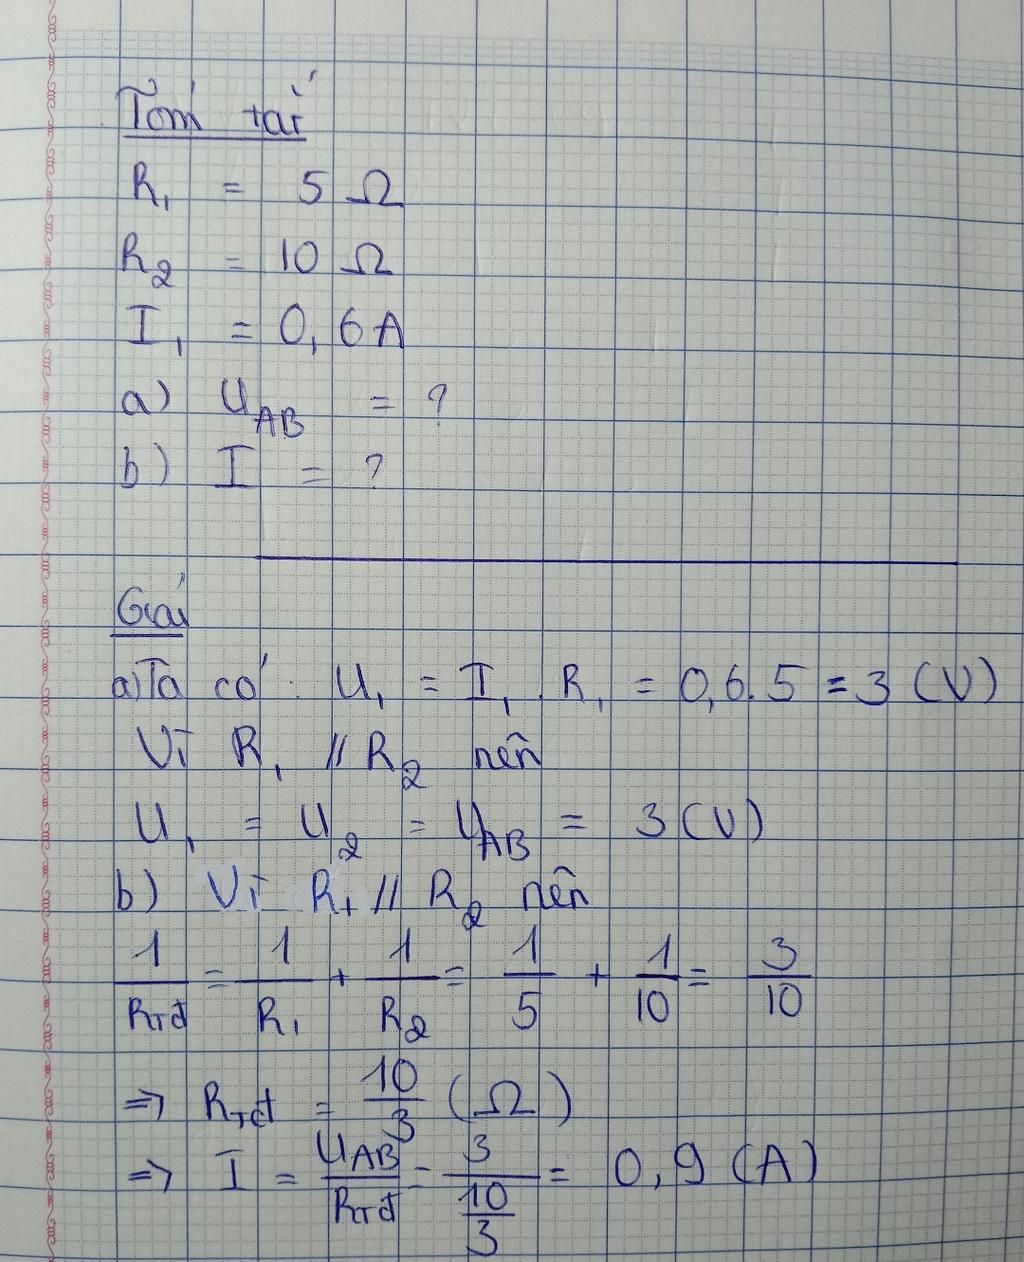 Tóm tắt
R₁ = 5 Ω
R₂ = 10 Ω
I₁ = 0,6A
a) U_AB = ?
b) I = ?
Giải
a) Ta có: U₁ = I₁ . R₁ = 0,6.5 = 3 (V)
Vì R₁ // R₂ nên
U₁ = U₂ = U_AB = 3 (V)
b) Vì R₁ // R₂ nên
1/R_Tđ = 1/R₁ + 1/R₂ = 1/5 + 1/10 = 3/10
=> R_Tđ = 10/3 (Ω)
=> I = U_AB/R_Tđ = 3/(10/3) = 0,9 (A)